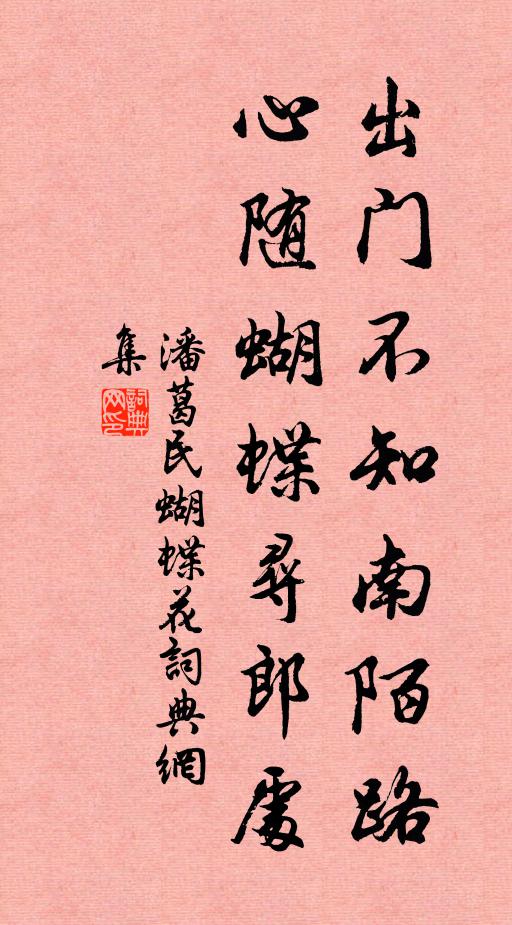 出门不知南陌路
心随蝴蝶寻郎處
潘葛民蝴蝶花詞典網
集
詞典網印